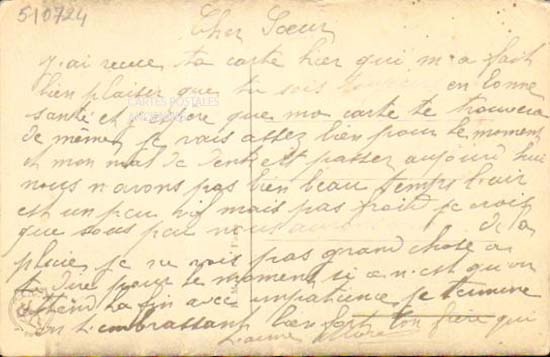 510724
Cher Sœur
j'ai reçue ta carte hier qui m'a fait
bien plaiser que tu sois en bonne
santé et j'espère que ma carte te trouvera
CARTES POSTALES
ANCIENNES
de même je vais assez bien pour le moment
et mon mal de dent est passer aujourd'hui
nous n'avons pas bien beau temps l'air
est un peu vif mais pas froid je crois
que sous peu nous de la
pluie je ne vois pas grand chose a
te dire pour le moment si a n'est qu'on
attend la fin avec impatience je termine
en t'embrassant bien fort ton frère qui
t'aime